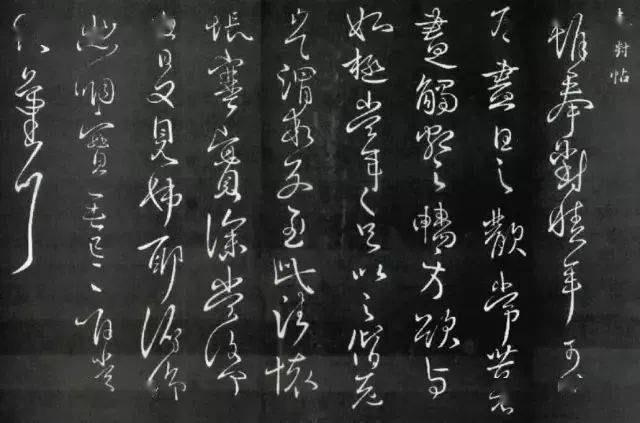 奉對帖
雖奉對積年可以
為盡日之歡常苦不
盡觸額之暢方欲與
姊極當年之疋以之偕老
豈謂乖別至此諸懷
悵塞實深當復何
由日夕見姊耶俯仰
悲咽實無已已唯當
絕氣耳